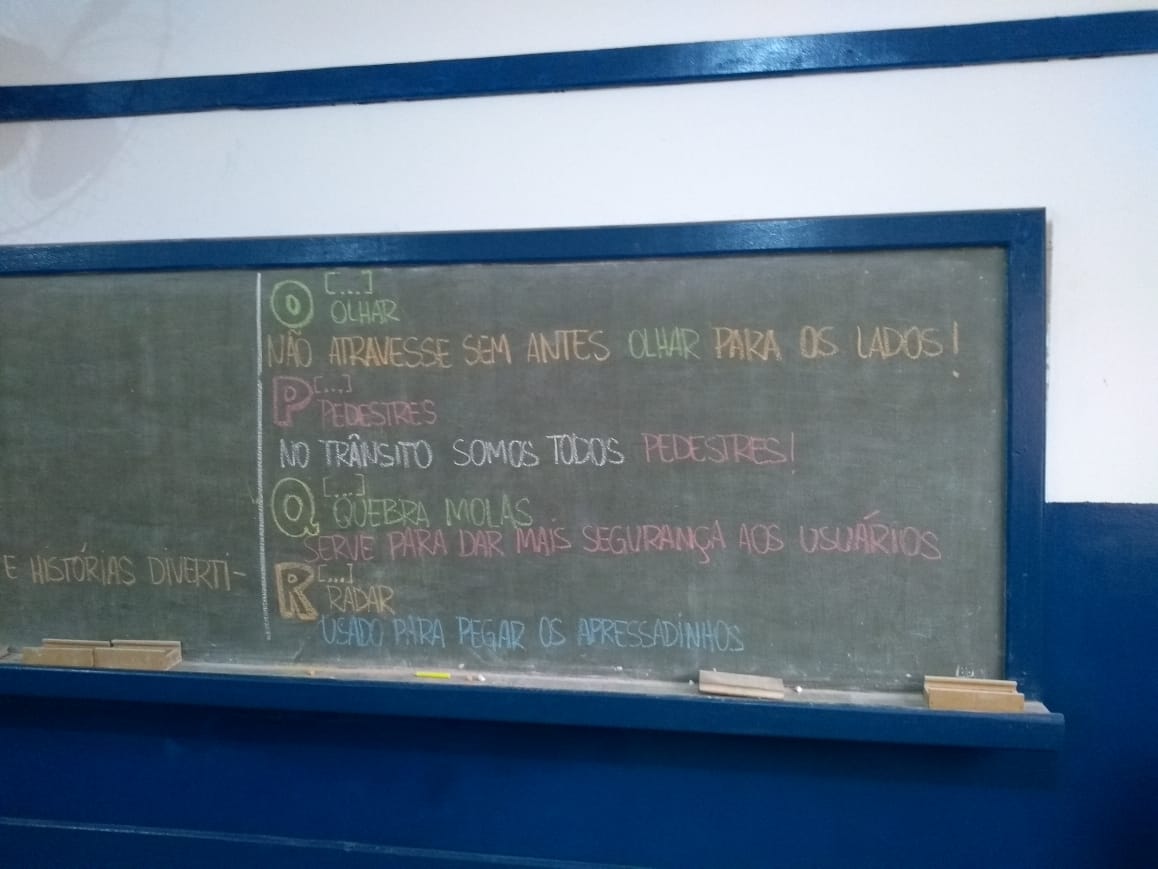 E HISTÓRIAS DIVERTI-
O [...]
OLHAR
NÃO ATRAVESSE SEM ANTES OLHAR PARA OS LADOS!
P [...]
PEDESTRES
NO TRÂNSITO SOMOS TODOS PEDESTRES!
Q [...]
QUEBRA MOLAS
SERVE PARA DAR MAIS SEGURANÇA AOS USUÁRIOS
R [...]
RADAR
USADO PARA PEGAR OS APRESSADINHOS